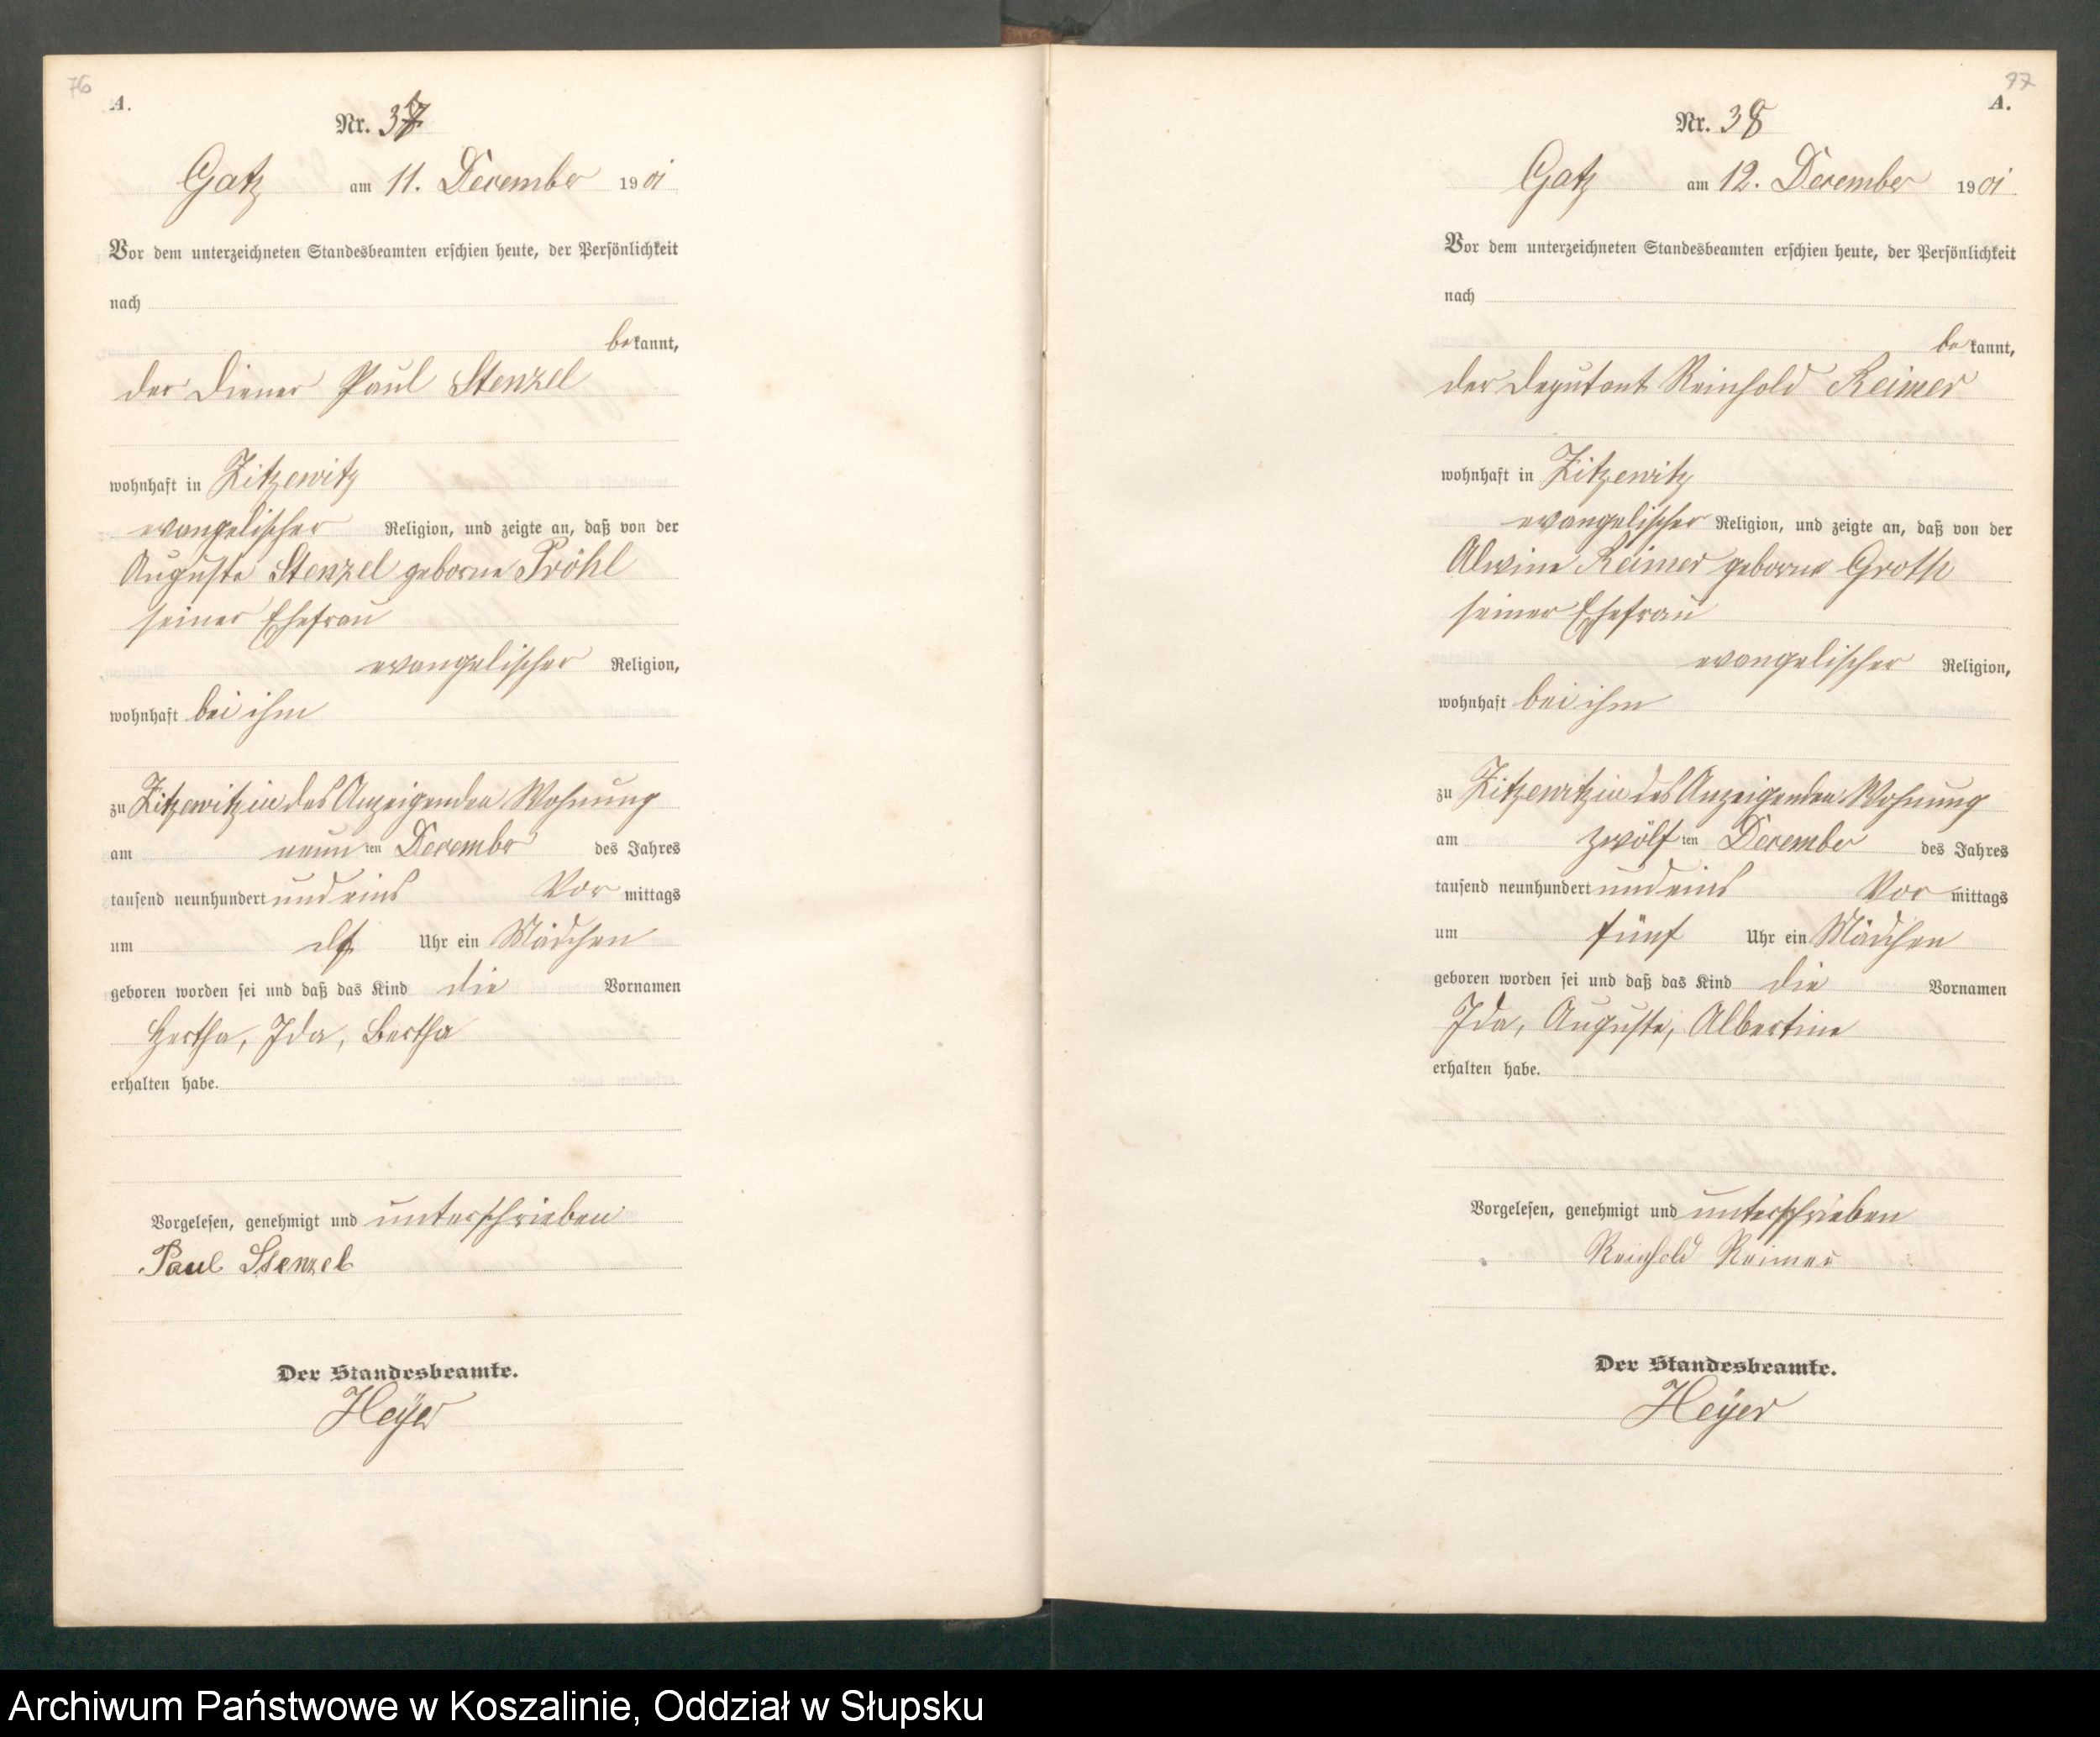 76
A.
Nr. 37
Gatz am 11. December 1901
Vor dem unterzeichneten Standesbeamten erschien heute, der Persönlichkeit
nach
bekannt,
der Diener Paul Stenzel
wohnhaft in Zitzewitz
evangelischer Religion, und zeigte an, daß von der
Auguste Stenzel geborne Pröhl
seiner Ehefrau
evangelischer Religion,
wohnhaft bei ihm
zu Zitzewitz in des Anzeigenden Wohnung
am neunten December des Jahres
tausend neunhundert und eins Vormittags
um elf Uhr ein Mädchen
geboren worden sei und daß das Kind die Vornamen
Hertha, Ida, Bertha
erhalten habe.
Vorgelesen, genehmigt und unterschrieben
Paul Stenzel
Der Standesbeamte.
Heyer
77
A.
Nr. 38
Gatz am 12. December 1901
Vor dem unterzeichneten Standesbeamten erschien heute, der Persönlichkeit
nach
bekannt,
der Deputant Reinhold Reimer
wohnhaft in Zitzewitz
evangelischer Religion, und zeigte an, daß von der
Alwine Reimer geborne Groth
seiner Ehefrau
evangelischer Religion,
wohnhaft bei ihm
zu Zitzewitz in des Anzeigenden Wohnung
am zwölften December des Jahres
tausend neunhundert und eins Vormittags
um fünf Uhr ein Mädchen
geboren worden sei und daß das Kind die Vornamen
Ida, Auguste, Albertine
erhalten habe.
Vorgelesen, genehmigt und unterschrieben
Reinhold Reimer
Der Standesbeamte.
Heyer
Archiwum Państwowe w Koszalinie, Oddział w Słupsku